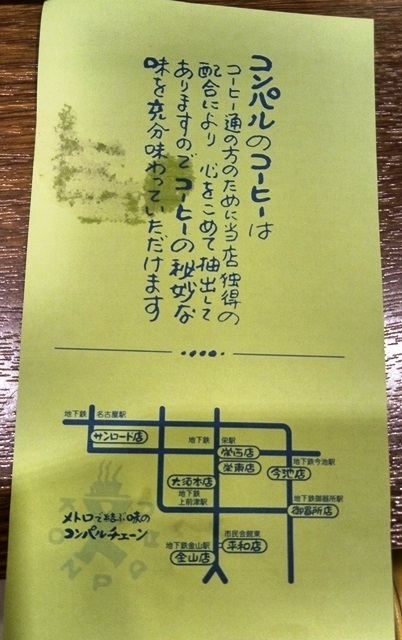 コンパルのコーヒーは
コーヒー通の方のために当店独得の
配合により 心をこめて抽出して
ありますのでコーヒーの秘妙な
味を充分味わっていただけます
地下鉄 名古屋駅
サンロード店
地下鉄 栄駅
栄西店
栄東店
地下鉄今池駅
今池店
大須本店
地下鉄
上前津駅
地下鉄御器所駅
御器所店
メトロで結ぶ味の
コンパルチェーン
市民会館東
平和店
地下鉄金山駅
金山店